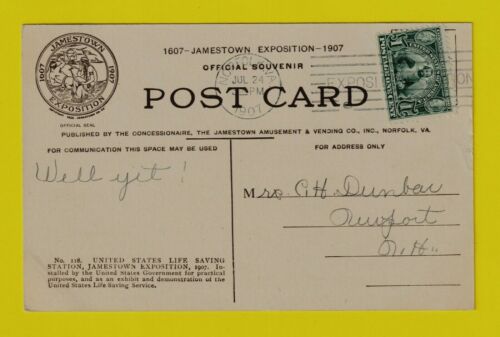 JAMESTOWN
1607
1907
EXPOSITION
OFFICIAL SEAL
1607-JAMESTOWN EXPOSITION-1907
OFFICIAL SOUVENIR
POST CARD
NORFOLK, VA.
JUL 24
PM
1907
EXPOSI
PUBLISHED BY THE CONCESSIONAIRE, THE JAMESTOWN AMUSEMENT & VENDING CO., INC., NORFOLK, VA.
FOR COMMUNICATION THIS SPACE MAY BE USED
FOR ADDRESS ONLY
Well yit!
Mrs. C H. Dunbar
Newport
N. H.
No. 118. UNITED STATES LIFE SAVING
STATION, JAMESTOWN EXPOSITION, 1907. In-
stalled by the United States Government for practical
purposes, and as an exhibit and demonstration of the
United States Life Saving Service.